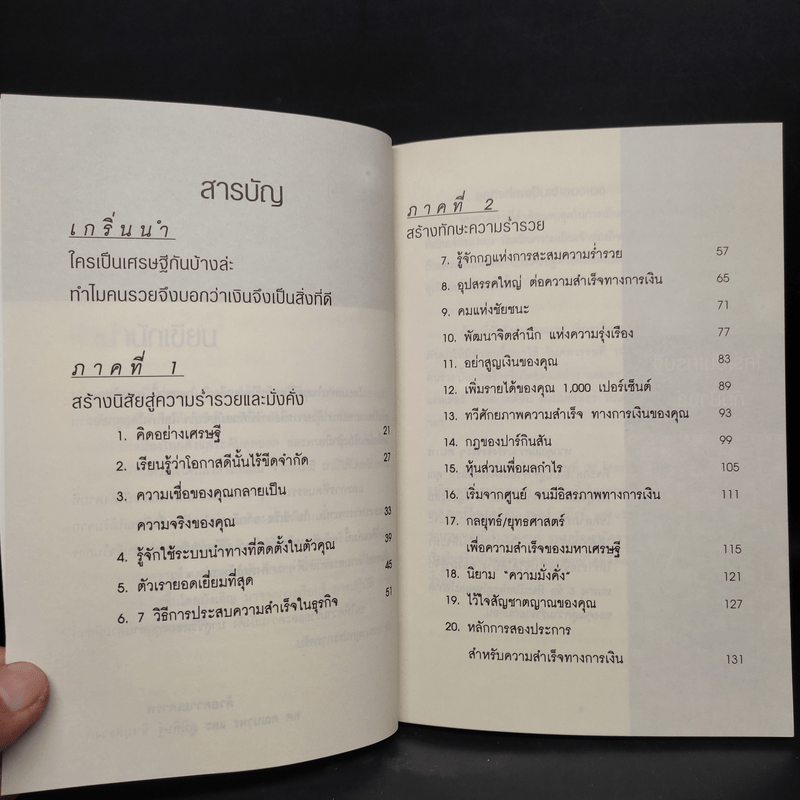 สารบัญ
เกริ่นนำ
ใครเป็นเศรษฐีกันบ้างล่ะ
ทำไมคนรวยจึงบอกว่าเงินจึงเป็นสิ่งที่ดี
ภาคที่ 1
สร้างนิสัยสู่ความร่ำรวยและมั่งคั่ง
1. คิดอย่างเศรษฐี 21
2. เรียนรู้ว่าโอกาสดีนั้นไร้ขีดจำกัด 27
3. ความเชื่อของคุณกลายเป็น
ความจริงของคุณ 33
4. รู้จักใช้ระบบนำทางที่ติดตั้งในตัวคุณ 39
5. ตัวเรายอดเยี่ยมที่สุด 45
6. 7 วิธีการประสบความสำเร็จในธุรกิจ 51
ภาคที่ 2
สร้างทักษะความร่ำรวย
7. รู้จักกฎแห่งการสะสมความร่ำรวย 57
8. อุปสรรคใหญ่ ต่อความสำเร็จทางการเงิน 65
9. คมแห่งชัยชนะ 71
10. พัฒนาจิตสำนึก แห่งความรุ่งเรือง 77
11. อย่าสูญเงินของคุณ 83
12. เพิ่มรายได้ของคุณ 1,000 เปอร์เซ็นต์ 89
13. ทวีศักยภาพความสำเร็จ ทางการเงินของคุณ 93
14. กฎของปาร์กินสัน 99
15. หุ้นส่วนเพื่อผลกำไร 105
16. เริ่มจากศูนย์ จนมีอิสรภาพทางการเงิน 111
17. กลยุทธ์/ยุทธศาสตร์
เพื่อความสำเร็จของมหาเศรษฐี 115
18. นิยาม "ความมั่งคั่ง" 121
19. ไว้ใจสัญชาตญาณของคุณ 127
20. หลักการสองประการ
สำหรับความสำเร็จทางการเงิน 131